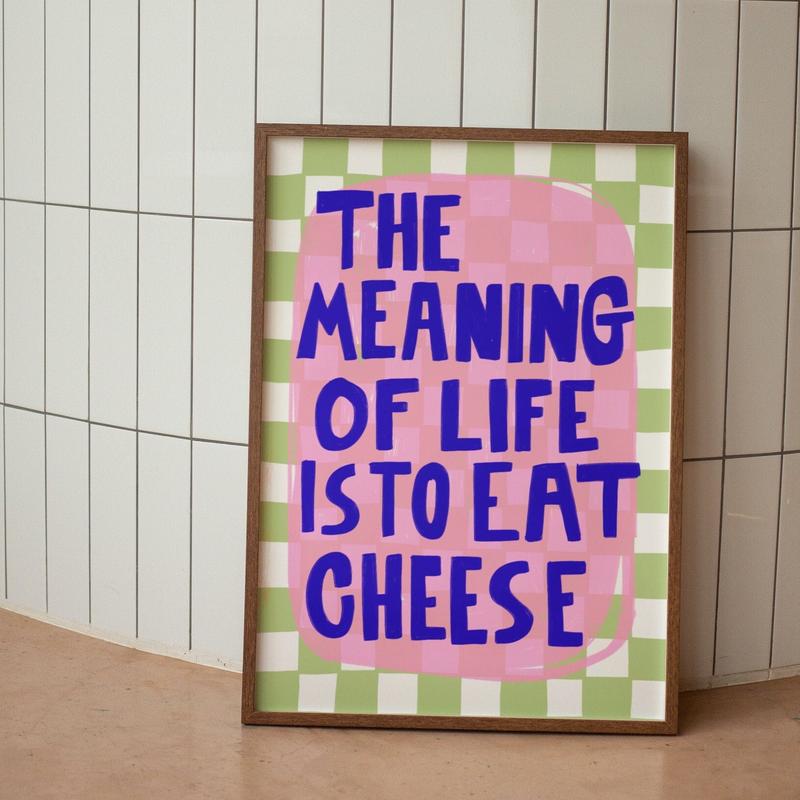 THE
MEANING
OF LIFE
IS TO EAT
CHEESE